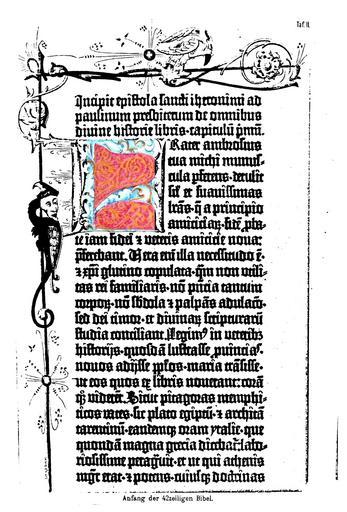 Taf. II.
Incipit epistola sancti iheronimi ad
paulinum presbiterum de omnibus
divine historie libris. capitulū pmū.
Frater ambrosius
tua michi munus-
cula pferens. detulit
sił et suavissimas
lrās. q̄ a principio
amiciciaꝝ. fidē pba-
te iam fidei et veteris amicicie nova:
pferebant. Vera eni illa necessitudo ē.
et xp̄i glutino copulata. qm̄ non utili-
tas rei familiaris. nō pn̄cia tantum
corpoꝝ. nō sbdola et palpās adulacō.
sed dei timor. et divinaꝝ scripturarū
studia conciliant. Legim⁹ in veteribꝫ
historijs. quosdā lustrasse puincias.
novos adijsse pplos. maria trāsisse.
ut eos quos ex libris noverant: corā
qꝫ viderēt. Sicut pitagoras memphi-
ticos vates. sic plato egiptū. et architā
tarentinū. eandemqꝫ oram ytalie. que
quondā magna grecia dicebat̄: labo-
riosissime peragvit. et ut qui athenis
mgr̄ erat. et potens. cuiusqꝫ doctrinas
Anfang der 42zeiligen Bibel.